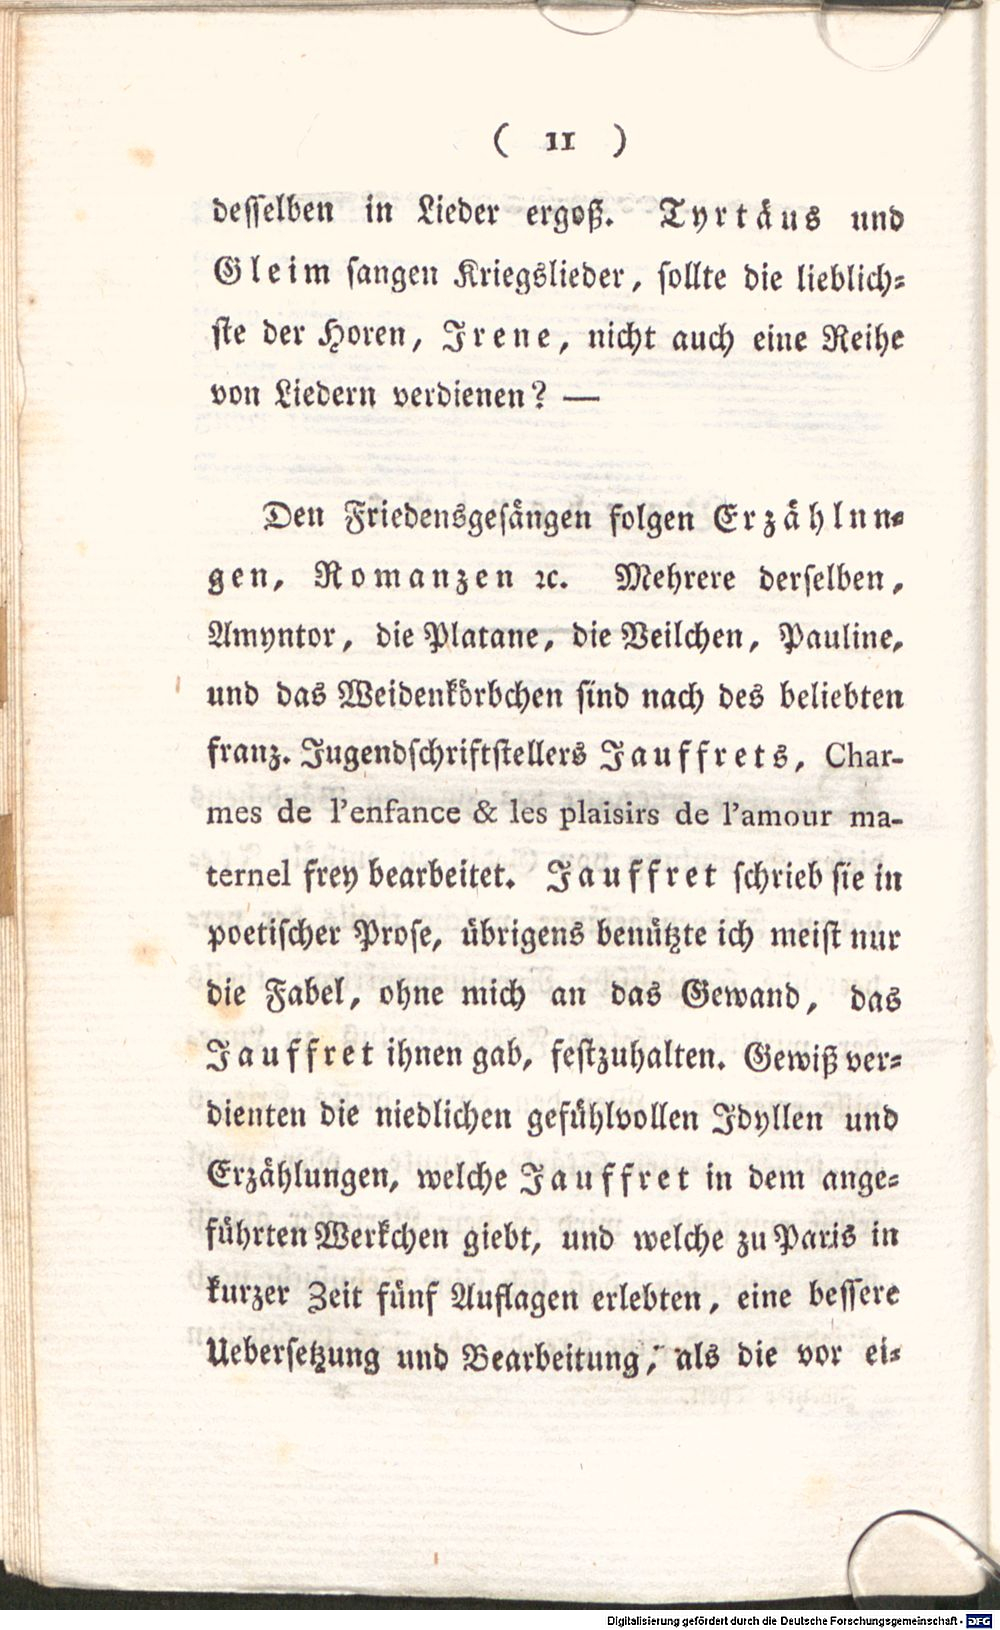 ( 11 )
desselben in Lieder ergoß. Tyrtäus und
Gleim sangen Kriegslieder, sollte die lieblich-
ste der Horen, Irene, nicht auch eine Reihe
von Liedern verdienen? —
Den Friedensgesängen folgen Erzählnn-
gen, Romanzen ꝛc. Mehrere derselben,
Amyntor, die Platane, die Veilchen, Pauline,
und das Weidenkörbchen sind nach des beliebten
franz. Jugendschriftstellers Jauffrets, Char-
mes de l'enfance & les plaisirs de l'amour ma-
ternel frey bearbeitet. Jauffret schrieb sie in
poetischer Prose, übrigens benützte ich meist nur
die Fabel, ohne mich an das Gewand, das
Jauffret ihnen gab, festzuhalten. Gewiß ver-
dienten die niedlichen gefühlvollen Idyllen und
Erzählungen, welche Jauffret in dem ange-
führten Werkchen giebt, und welche zu Paris in
kurzer Zeit fünf Auflagen erlebten, eine bessere
Uebersetzung und Bearbeitung, als die vor ei-
Digitalisierung gefördert durch die Deutsche Forschungsgemeinschaft - DFG